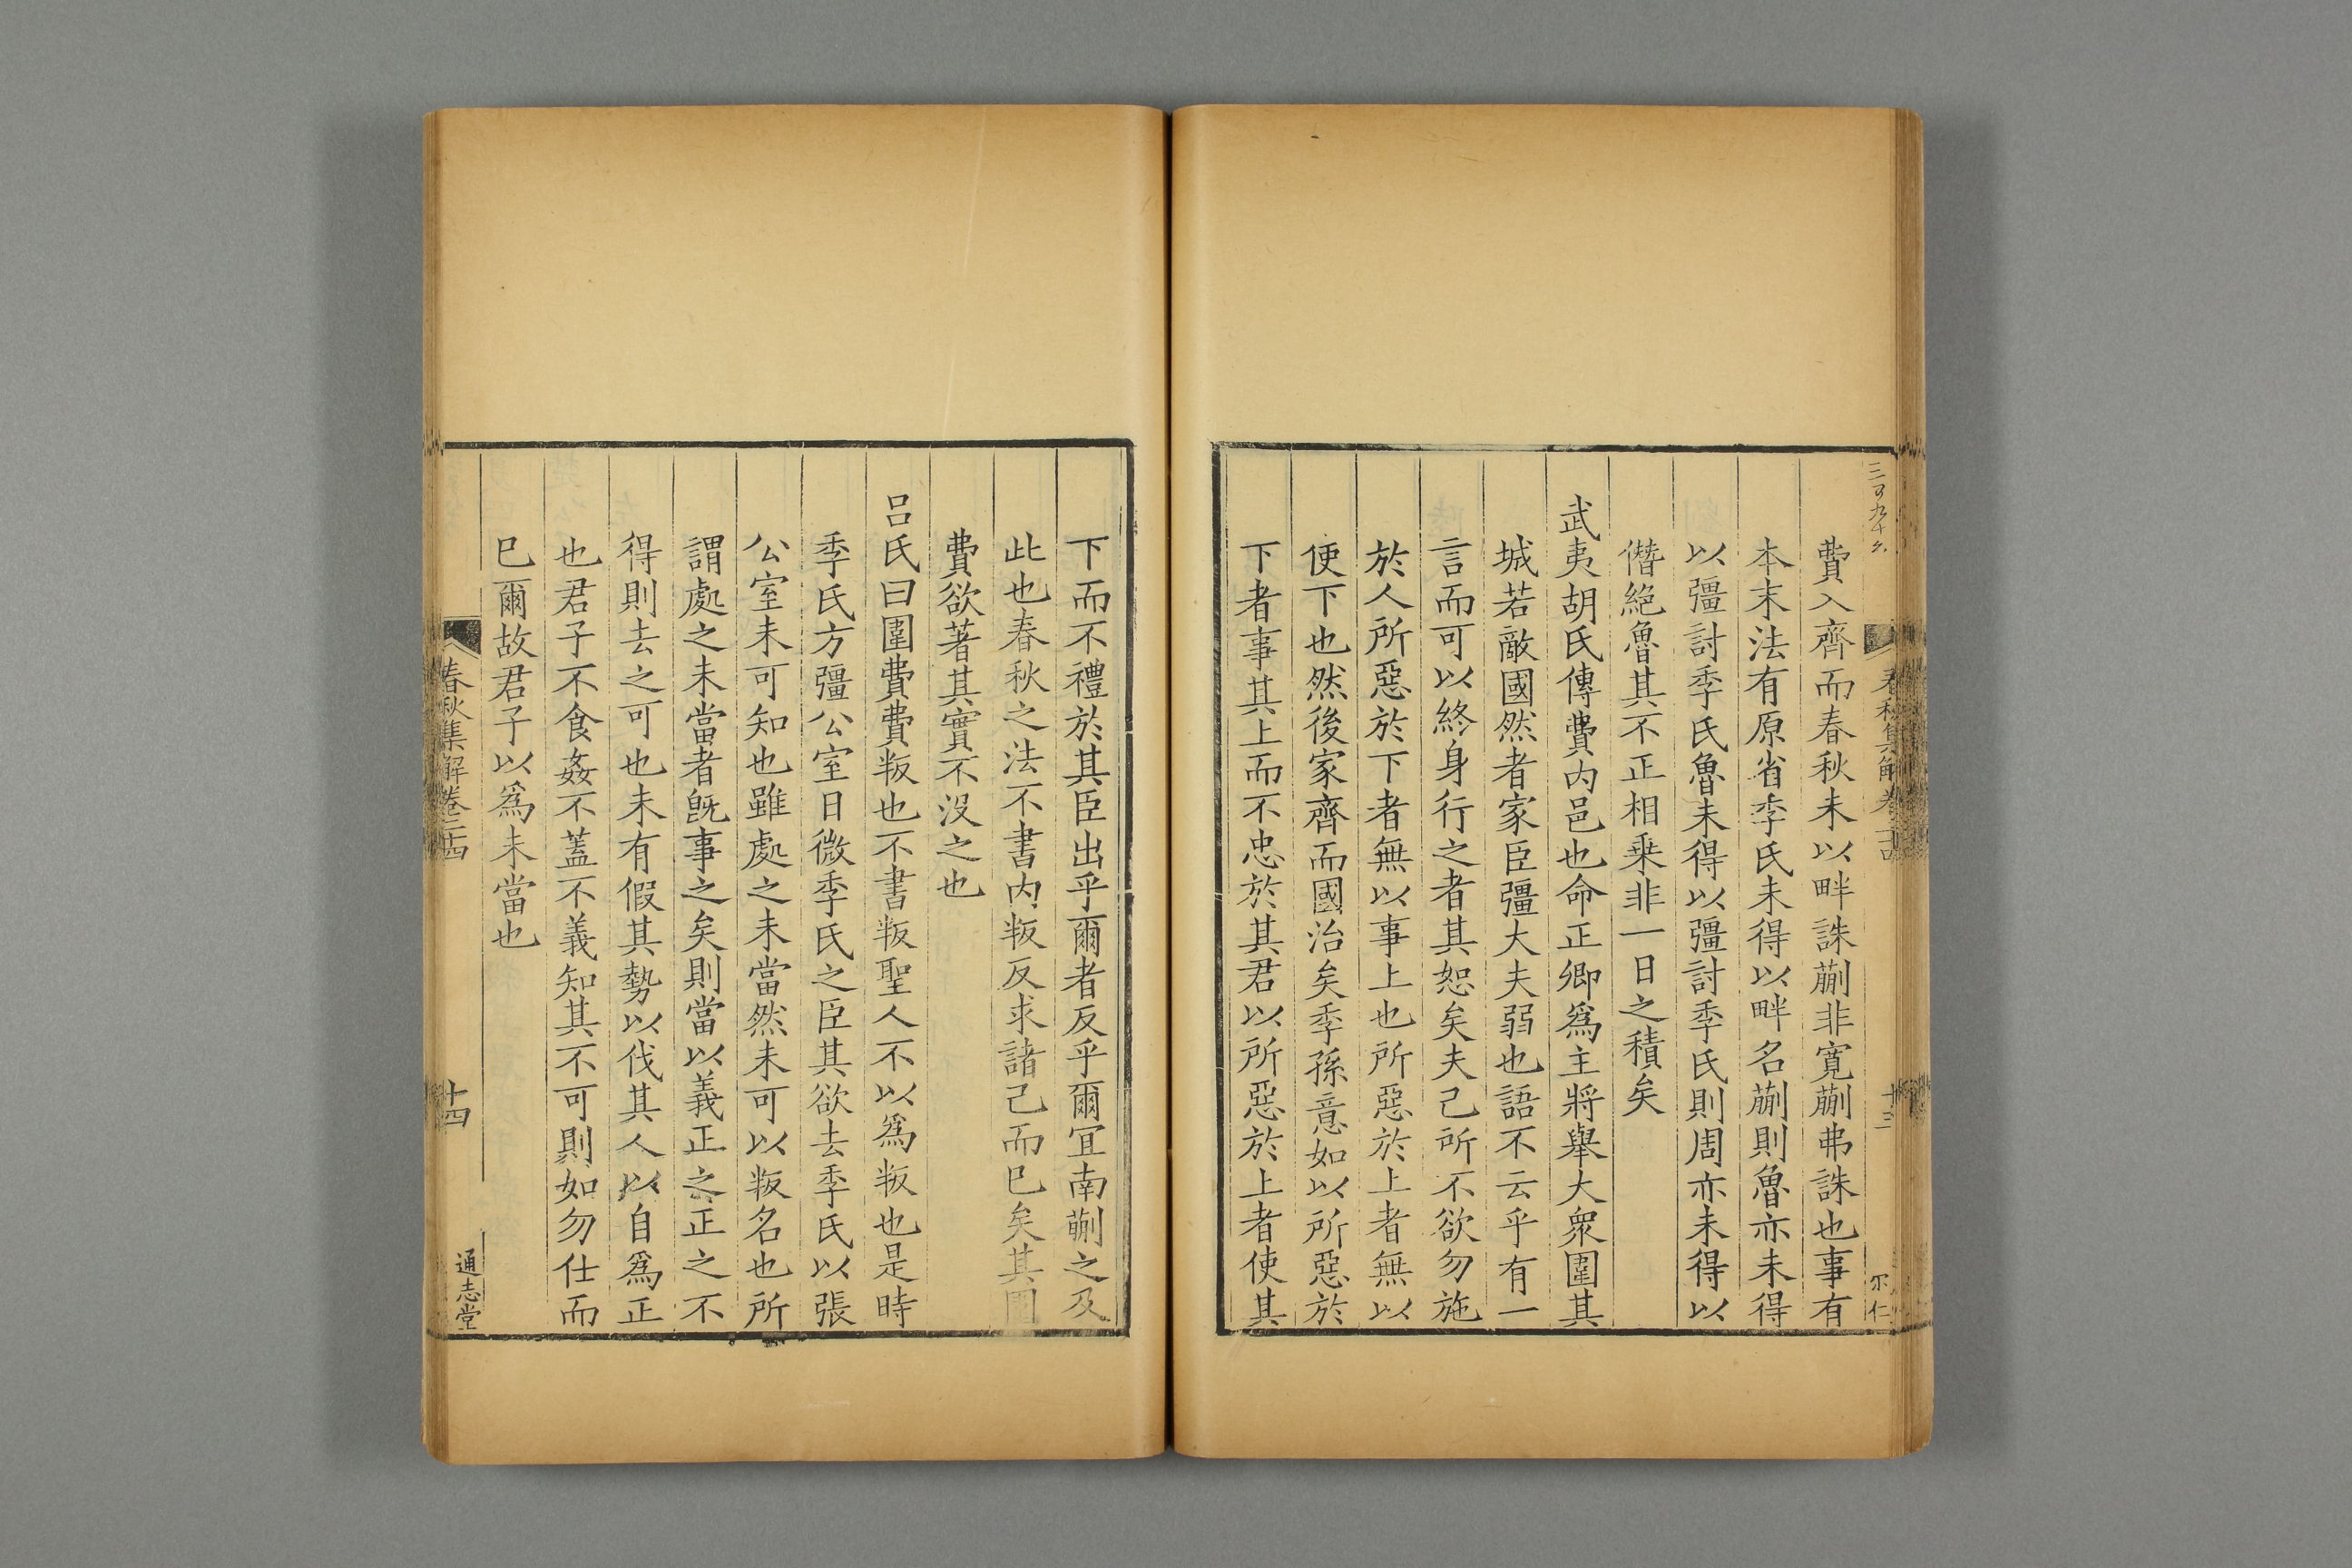 費入齊而春秋未以畔誅蒯非寛蒯弗誅也事有
本末法有原省季氏未得以畔名蒯則魯亦未得
以彊討季氏魯未得以彊討季氏則周亦未得以
僭絶魯其不正相乗非一日之積矣
武夷胡氏傳費内邑也命正卿爲主將舉大衆圍其
城若敵國然者家臣彊大夫弱也語不云乎有一
言而可以終身行之者其恕矣夫己所不欲勿施
於人所惡於下者無以事上也所惡於上者無以
使下也然後家齊而國治矣季孫意如以所惡於
下者事其上而不忠於其君以所惡於上者使其
下而不禮於其臣出乎爾者反乎爾宜南蒯之及
此也春秋之法不書内叛反求諸己而已矣其圍
費欲著其實不没之也
吕氏曰圍費費叛也不書叛聖人不以爲叛也是時
季氏方彊公室日微季氏之臣其欲去季氏以張
公室未可知也雖處之未當然未可以叛名也所
謂處之未當者旣事之矣則當以義正之正之不
得則去之可也未有假其勢以伐其人以自爲正
也君子不食姦不蓋不義知其不可則如勿仕而
已爾故君子以爲未當也
春秋集解卷二十四
十三
春秋集解卷二十四
十四
通志堂